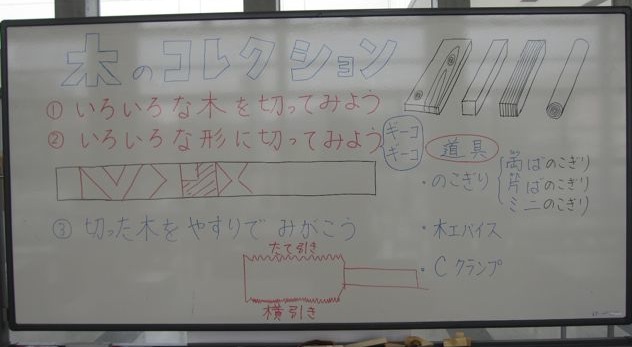 木のコレクション
① いろいろな木を切ってみよう
② いろいろな形に切ってみよう
ギーコ
ギーコ
道具
・のこぎり
両ばのこぎり
片ばのこぎり
ミニのこぎり
③ 切った木をやすりでみがこう
・木工バイス
・Cクランプ
たて引き
横引き